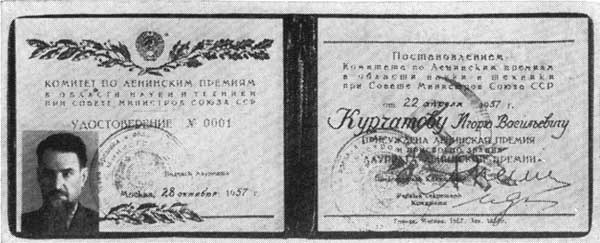 КОМИТЕТ ПО ЛЕНИНСКИМ ПРЕМИЯМ
В ОБЛАСТИ НАУКИ И ТЕХНИКИ
ПРИ СОВЕТЕ МИНИСТРОВ СОЮЗА ССР
УДОСТОВЕРЕНИЕ № 0001
Подпись лауреата
Москва, 28 октября 1957 г.
Постановлением
Комитета по Ленинским премиям
в области науки и техники
при Совете Министров Союза ССР
от 22 апреля 1957 г.
Курчатову Игорю Васильевичу
ПРИСУЖДЕНА ЛЕНИНСКАЯ ПРЕМИЯ
И ПРИСВОЕНО ЗВАНИЕ
ЛАУРЕАТА ЛЕНИНСКОЙ ПРЕМИИ
Ученый секретарь
Комитета
Гознак. Москва. 1957.